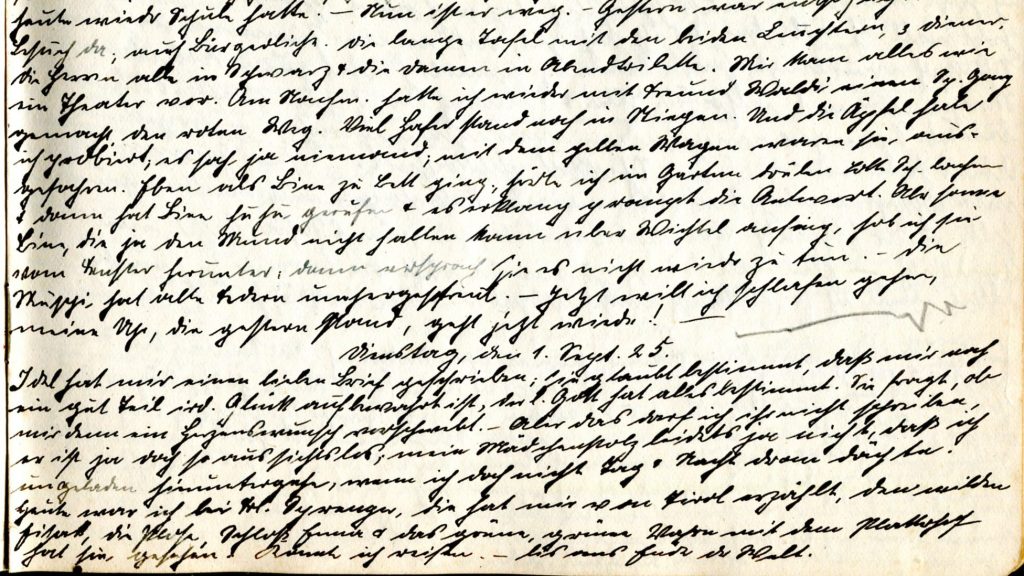 heute wieder Schule hatte. – Nun ist er weg. – Gestern war
Besuch da; auch Bürgerliche. Die lange Tafel mit den beiden Leuchtern, 3 Diener.
Die Herrn alle in Schwarz & die Damen in Abendtoilette. Mir kam alles wie
ein Theater vor. Am Nachm. hatte ich wieder mit Freund Waldi einen Sp. Gang
gemacht den roten Weg. Viel Hafer stand noch in Stiegen. Und die Äpfel habe
ich probiert; es sah ja niemand; mit dem gelben Wagen waren sie aus-
gefahren. Eben als Bine zu Bett ging, hörte ich im Garten drüben Lotte Sch. lachen
& dann hat Bine huhu gerufen & es erklang prompt die Antwort. Als
Bine, die ja den Mund nicht halten kann über Wichtel anfing, hob ich sie
vom Fenster herunter; dann versprach sie es nicht wieder zu tun. – Die
hat alte Federn umhergestreut. – Jetzt will ich schlafen gehen,
meine Uhr, die gestern stand, geht jetzt wieder! –
Dienstag, den 1. Sept. 25.
Idel hat mir einen lieben Brief geschrieben; sie glaubt bestimmt, daß mir noch
ein gut Teil ird. Glück aufbewahrt ist, der l. Gott hat alles bestimmt. Sie fragt, ob
mir denn ein Herzenswunsch vorschwebt. – Aber das darf ich ihr nicht schreiben,
er ist ja doch so aussichtslos; mein Mädchenstolz leidets ja nicht, daß ich
ungeladen hinuntergehe, wenn ich doch nicht Tag & Nacht dran dächte.
Heute war ich bei Frl. Sprenger, die hat mir von Tirol erzählt, den wilden
Eisak, die Plose, Schloß Enna & das grüne, grüne Wasser mit dem Plattkofel
hat sie gesehen. Könnt ich reisen. – bis ans Ende der Welt.